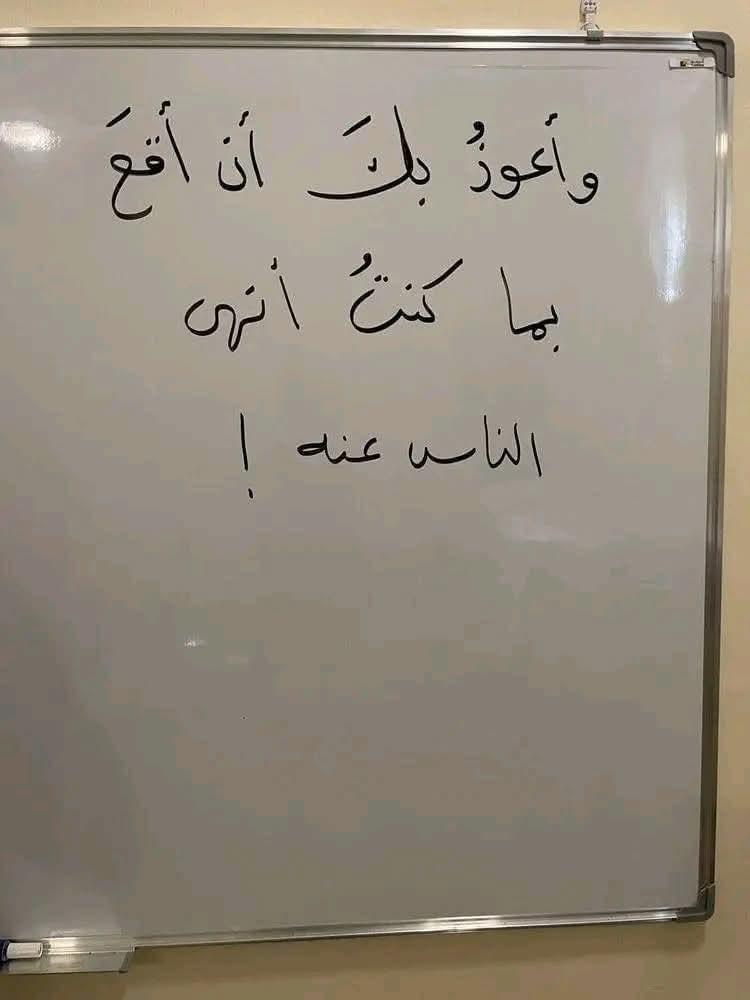 وأعوذُ بكَ أن أقعَ
بما كنتُ أنهى
الناس عنه !